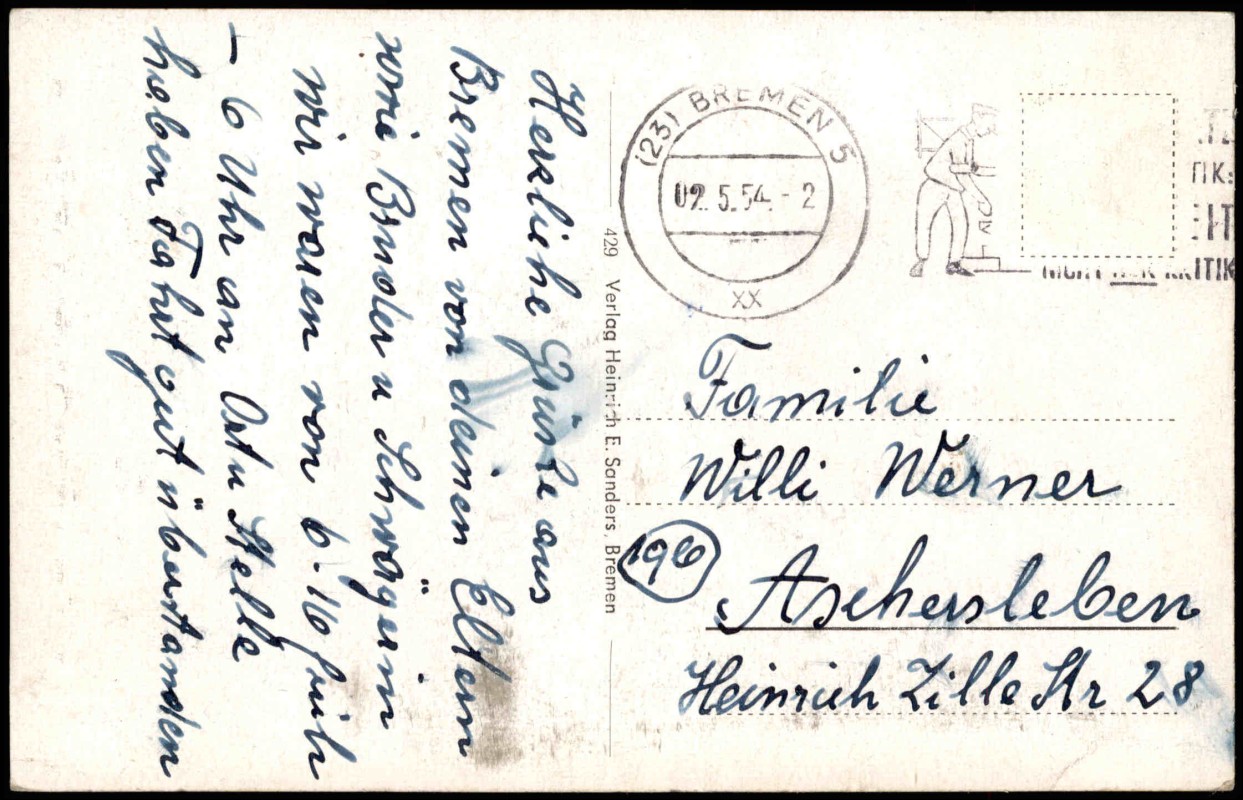 Herzliche Grüße aus
Bremen von deinen Eltern
wie Bruder u Schwägerin
wir waren von 6.
früh
– 6 Uhr an Ort u Stelle
haben Fahrt gut überstanden
429 Verlag Heinrich E. Sanders, Bremen
(23) BREMEN 5
02.5.54.-2
XX
KRITIK
Familie
Willi Werner
19b
Aschersleben
Heinrich Zille Str 28